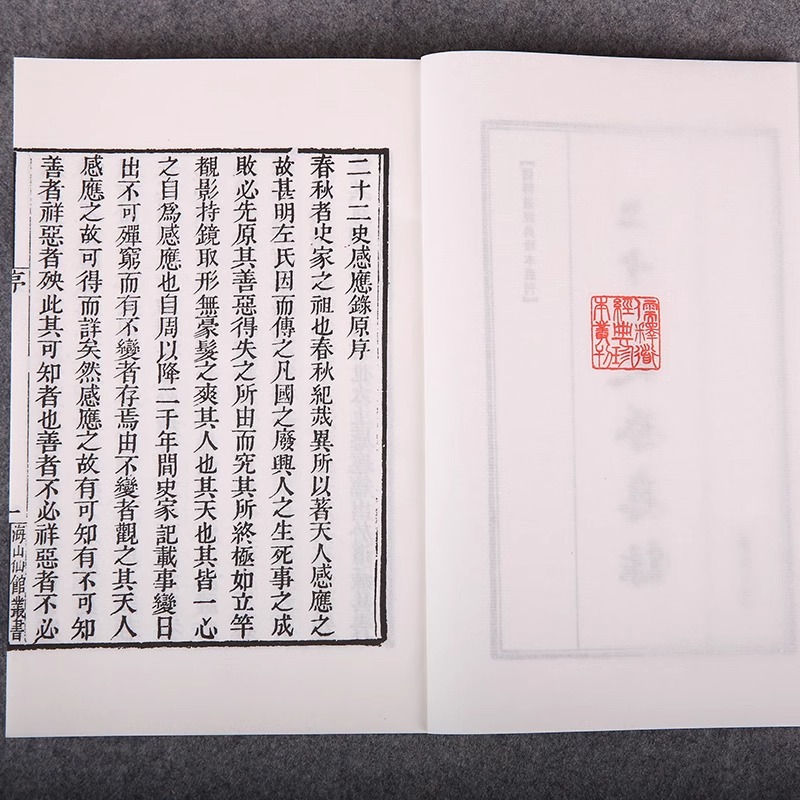 儒釋道
經典珍
本叢刊
二十二史感應錄原序
春秋者史家之祖也春秋紀烖異所以著天人感應之
故甚明左氏因而傳之凡國之廢興人之生死事之成
敗必先原其善惡得失之所由而究其所終極如立竿
觀影持鏡取形無豪髮之爽其人也其天也其皆一心
之自爲感應也自周以降二千年間史家記載事變日
出不可殫窮而有不變者存焉由不變者觀之其天人
感應之故可得而詳矣然感應之故有可知有不可知
善者祥惡者殃此其可知者也善者不必祥惡者不必
序
一
海山仙館叢書